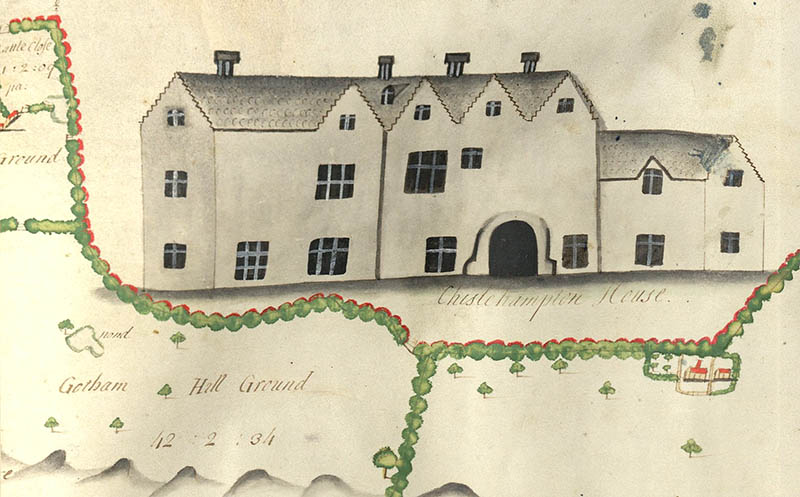 Close
1 : 2 : 09
pa:
Ground
Chislehampton House.
pond
Gotham Hill Ground
42 : 2 : 34